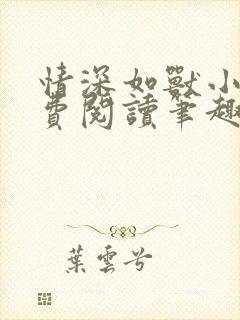 情深如獸小
費閱讀筆趣
葉雲兮